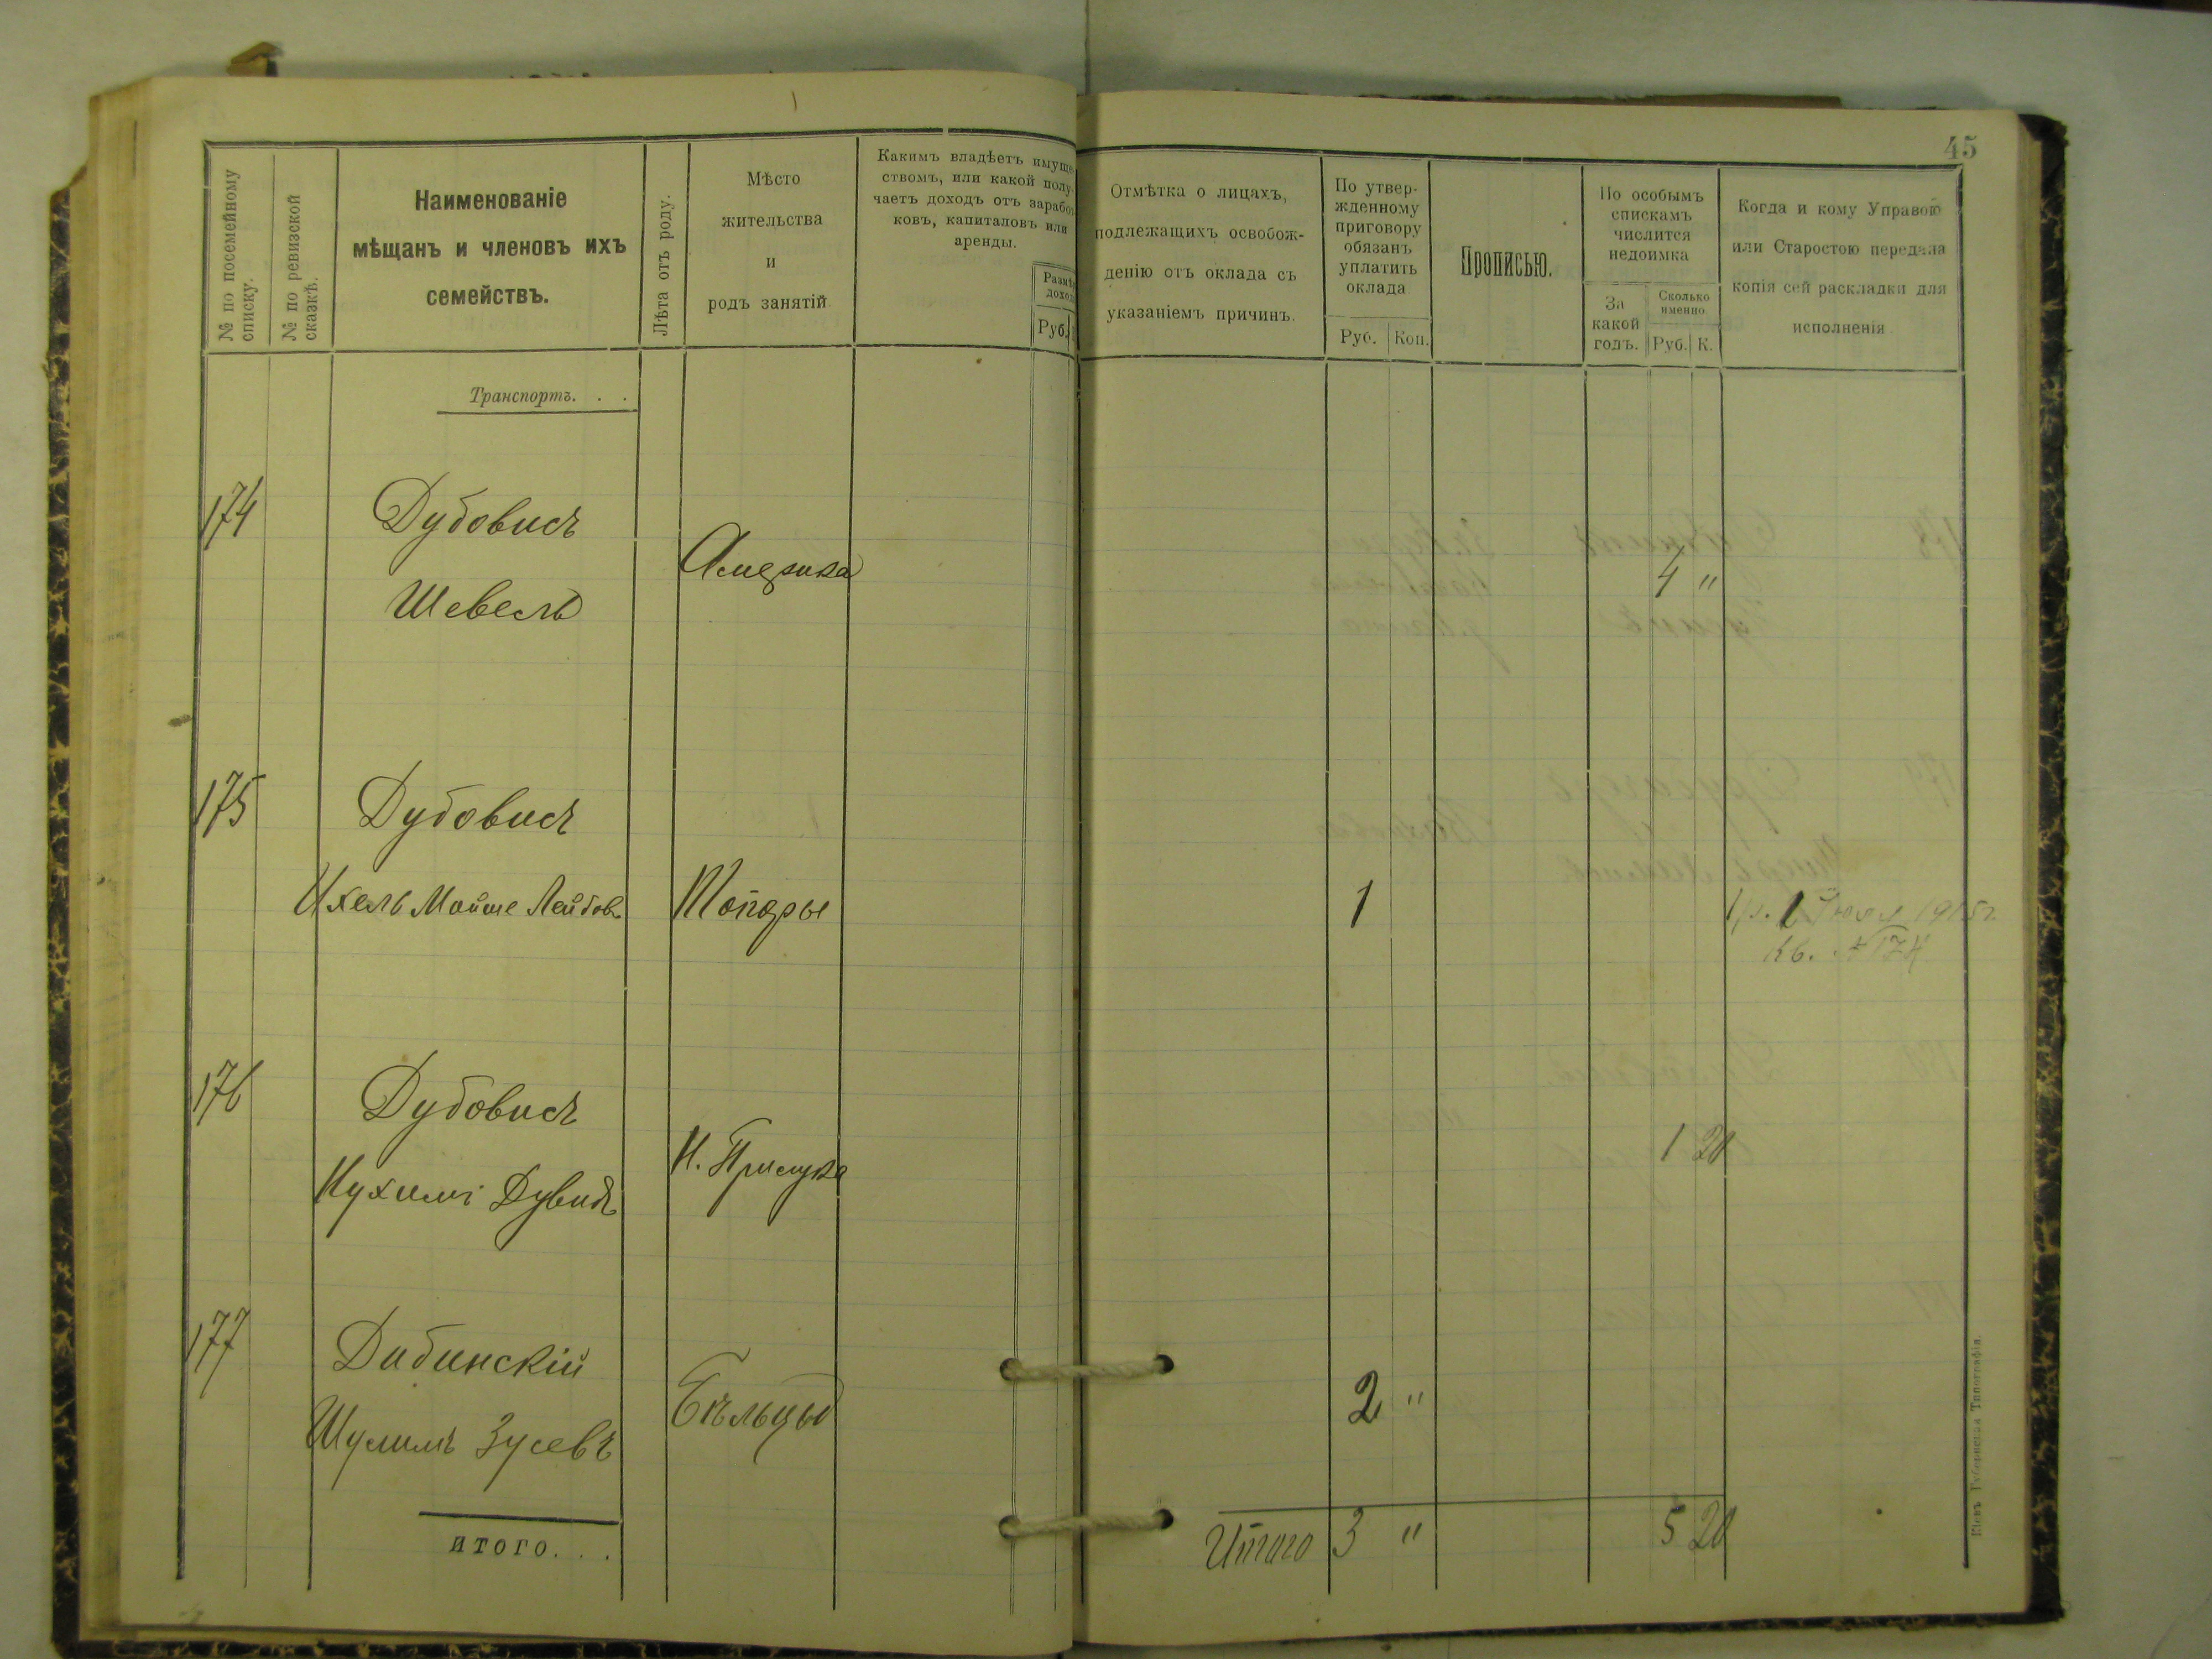 45
№ по посемейному списку.
№ по ревизской сказкѣ.
Наименованіе
мѣщанъ и членовъ ихъ
семействъ.
Лѣта отъ роду.
Мѣсто
жительства
и
родъ занятій
Какимъ владѣетъ имуще
ствомъ, или какой полу
чаетъ доходъ отъ зарабо
ковъ, капиталовъ или
аренды.
Руб.
Отмѣтка о лицахъ,
подлежащихъ освобож-
денію отъ оклада съ
указаніемъ причинъ.
По утвер-
жденному
приговору
обязанъ
уплатить
оклада
Руб. Коп.
Прописью.
По особымъ
спискамъ
числится
недоимка
За
какой
годъ.
Сколько
именно
Руб. К.
Когда и кому Управою
или Старостою передана
копія сей раскладки для
исполненія
Транспортъ. . .
174 Дубовисъ
Америка
4 "
Шевель
175 Дубовисъ
Ихель Мойше Лейбов Топоры 1 1р. 1 Юля 1915 г.
Кв. № 174
176 Дубовисъ
Н. Прилука 1 20
Нухимъ Дувидъ
177 Дибинскій
Бѣльцы 2 "
Шулимъ Зусевъ
итого. . . Итого 3 " 5 20
Кіевъ Губернская Типографія.